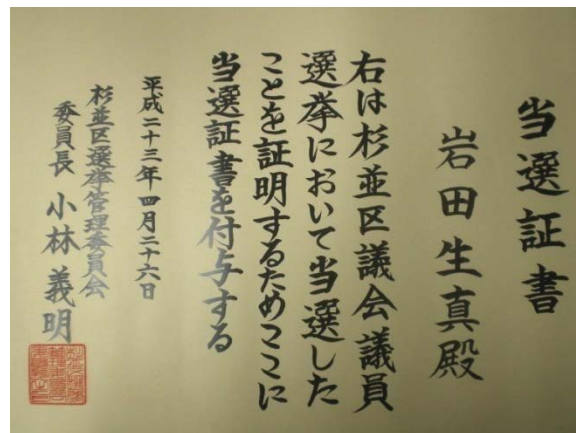 当選証書
岩田生真殿
右は杉並区議会議員
選挙において当選した
ことを証明するためここに
当選証書を付与する
平成二十三年四月二十六日
杉並区選挙管理委員会
委員長 小林義明